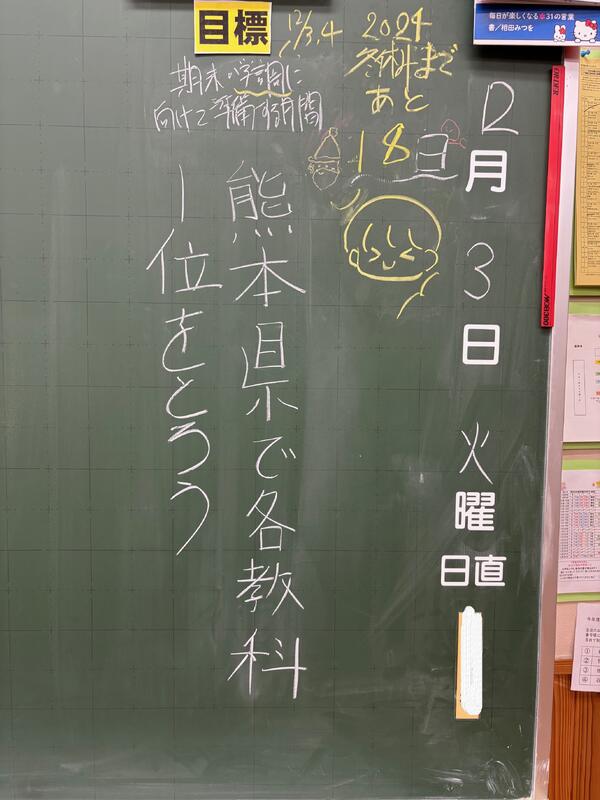 毎日が楽しくなる✽31の言葉
書/相田みつを
12月3日火曜
日直
2024
冬休みまで
あと
18日
目標
12/3,4
期末・学調に
向けて準備する月間
熊本県で各教科
1位をとろう
ORDER